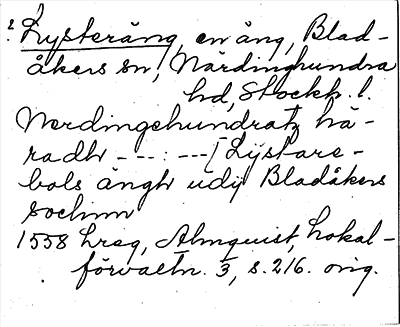 2. Lysteräng, en äng, Blad-
åkers sn, Närdinghundra
hd, Stockh. l.
Nerdingehundratz hä-
radh - - - : - - - [ Lÿstare-
bols ängh udij Bladåkers
sochnn
1558 hreg, Almquist, Lokal-
förvaltn. 3, s. 216. orig.